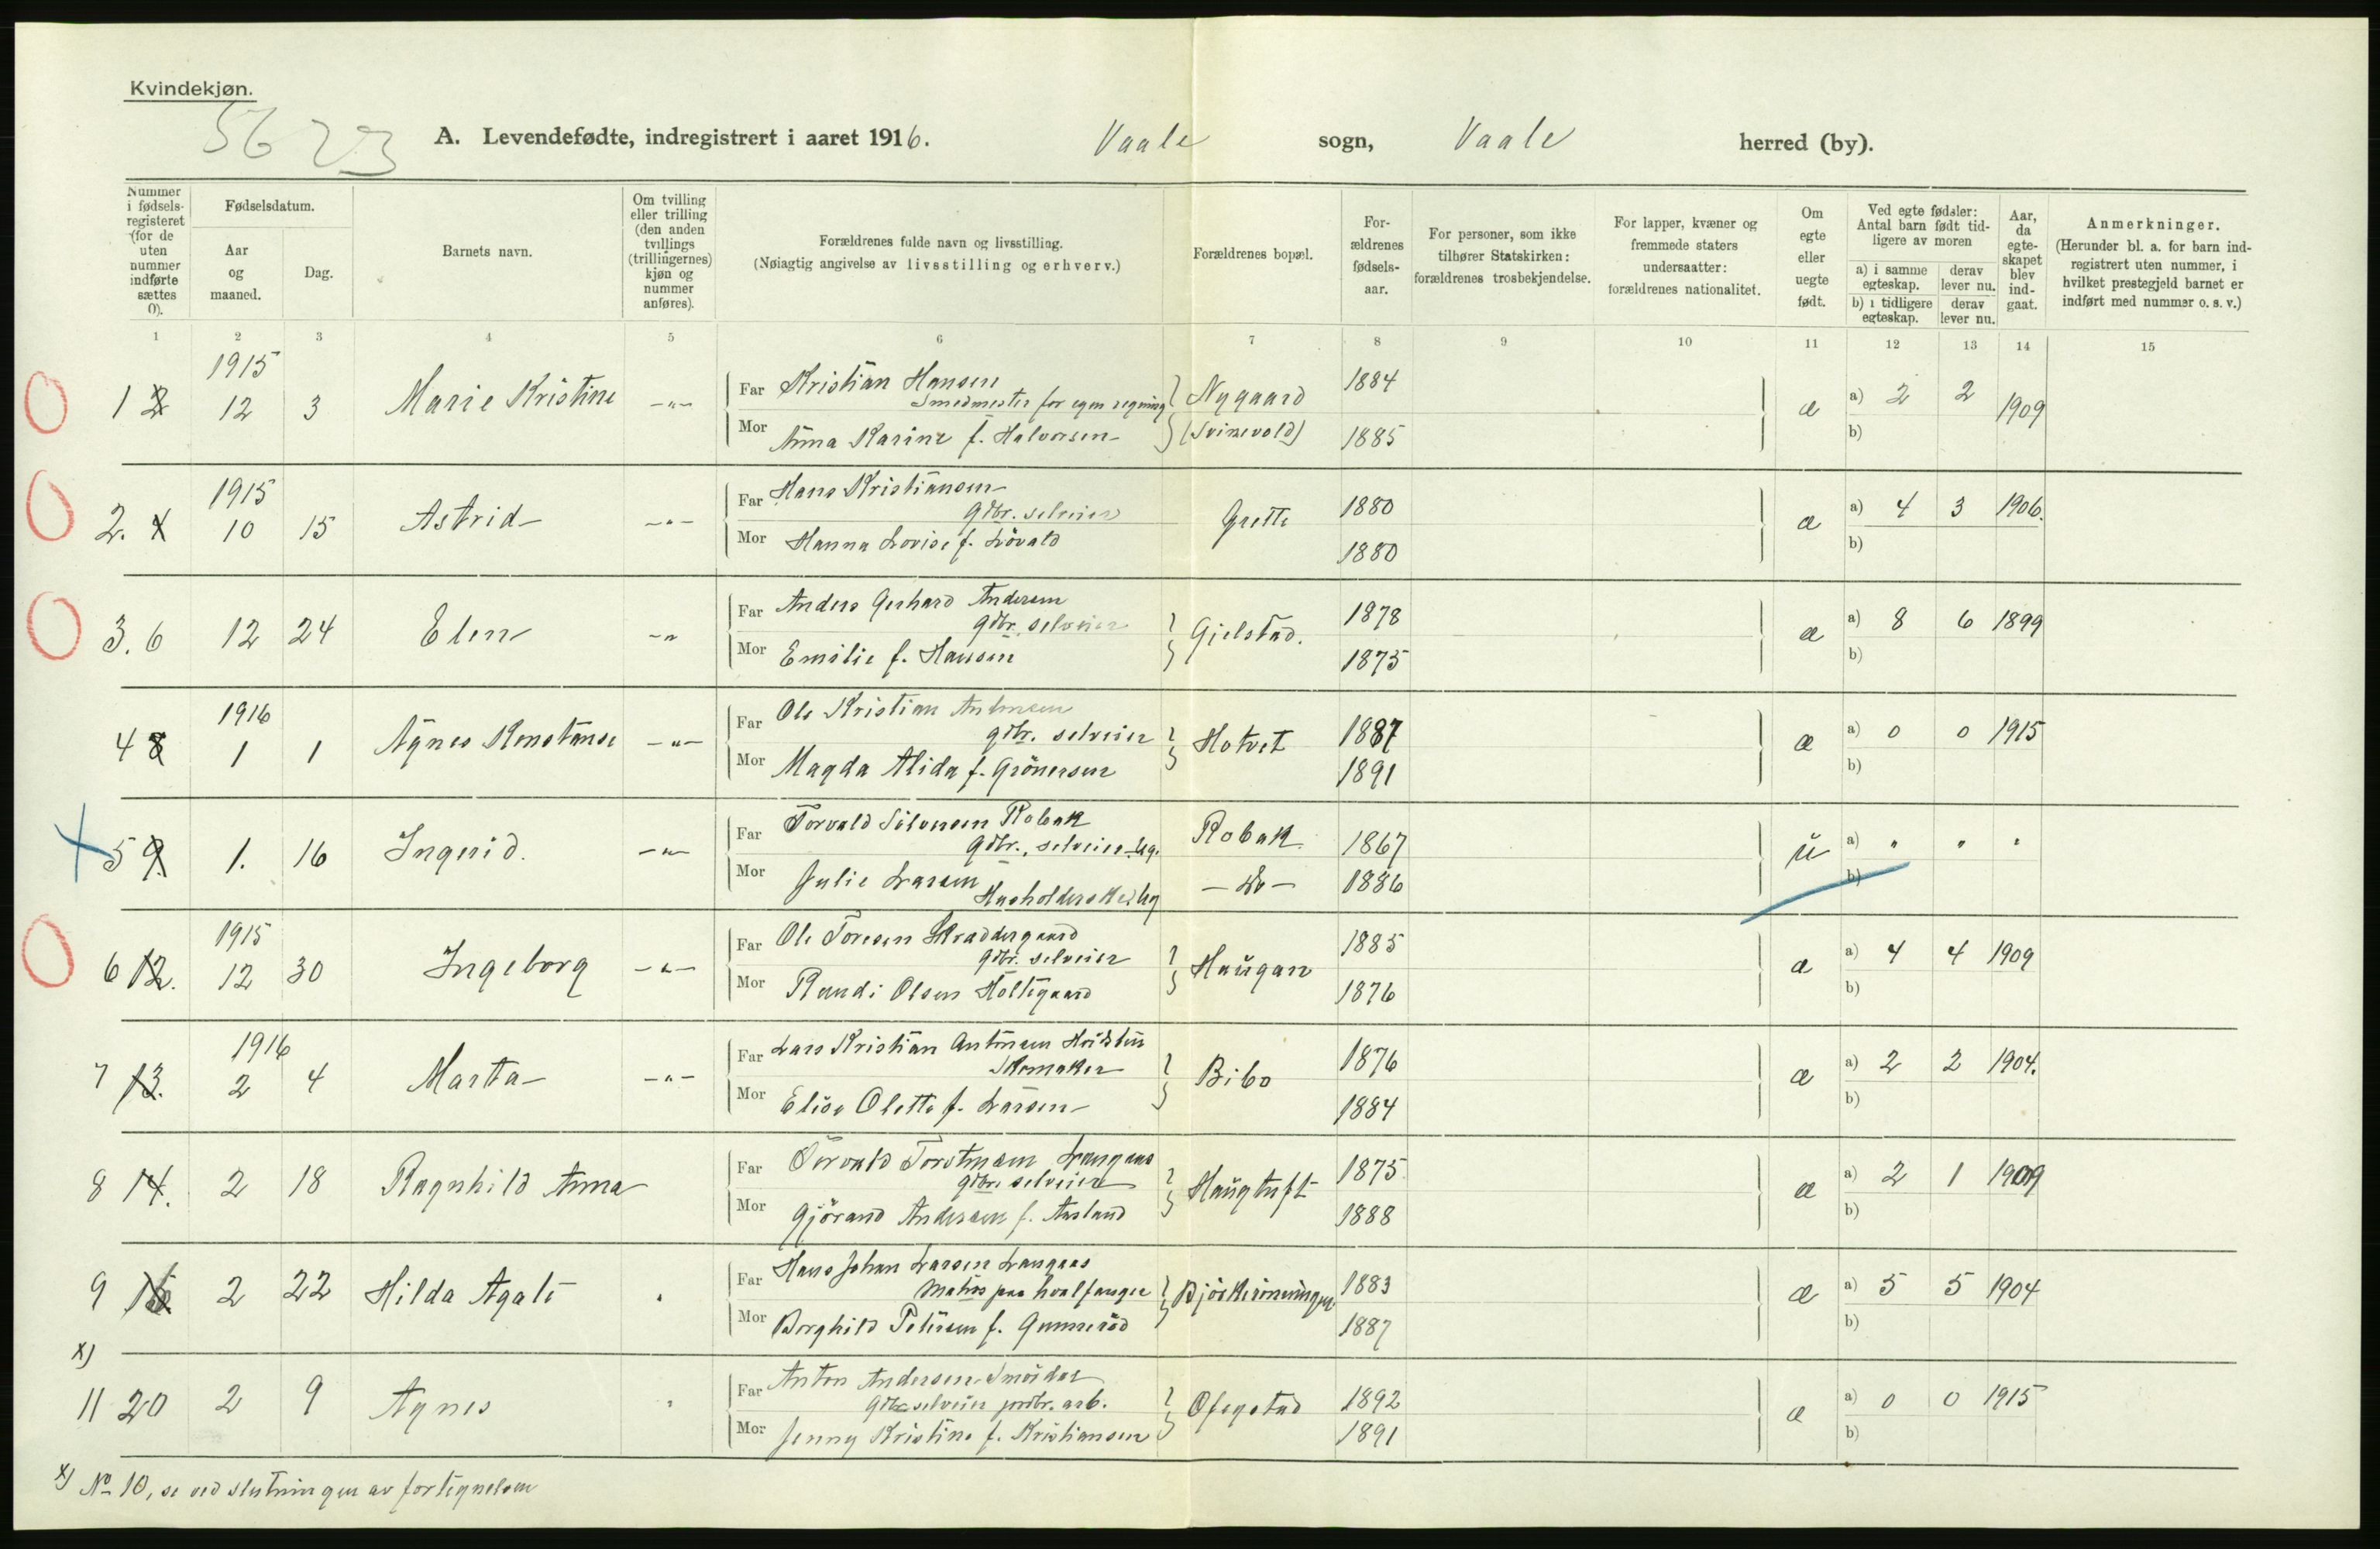 Kvindekjøn.
5623
A. Levendefødte, indregistrert i aaret 1916. Vaale sogn, Vaale herred (by).
Nummer i fødsels-registeret (for de uten nummer indførte sættes 0).
Fødselsdatum.
Aar og maaned.
Dag.
Barnets navn.
Om tvilling eller trilling (den anden tvillings (trillingernes) kjøn og nummer anføres).
Forældrenes fulde navn og livsstilling.
(Nøiagtig angivelse av livsstilling og erhverv.)
Forældrenes bopæl.
For-ældrenes fødsels-aar.
For personer, som ikke tilhører Statskirken: forældrenes trosbekjendelse.
For lapper, kvæner og fremmede staters undersaatter: forældrenes nationalitet.
Om egte eller uegte født.
Ved egte fødsler: Antal barn født tid-ligere av moren
a) i samme egteskap.
derav lever nu.
b) i tidligere egteskap.
derav lever nu.
Aar, da egte-skapet blev ind-gaat.
Anmerkninger.
(Herunder bl. a. for barn ind-registrert uten nummer, i hvilket prestegjeld barnet er indført med nummer o. s. v.)
1 2 3 4 5 6 7 8 9 10 11 12 13 14 15
1915
1 2 12 3 Marie Kristine -"- Far Kristian Hansen
Smedmester for egen regning
Mor Anna Karine f. Halvorsen
Nygaard
(Svinevold)
1884
1885
æ a) 2 2 1909
b)
1915
2. 4 10 15 Astrid -"- Far Hans Kristiansen
Gdbr. selveier
Mor Hanna Lovise f. Lövald
Grette
1880
1880
æ a) 4 3 1906.
b)
3. 6 12 24 Elen -"- Far Anders Gerhard Andersen
gdbr. selveier
Mor Emilie f. Hansen
Gjelstad.
1878
1875
æ a) 8 6 1899
b)
1916
4 8 1 1 Agnes Konstanse -"- Far Ole Kristian Antonsen
gdbr. selveier
Mor Magda Alida f. Grönersen
Hotvet
1887
1891
æ a) 0 0 1915
b)
5 9. 1. 16 Ingerid. -"- Far Torvald Robak
Gdbr., selveier. Ug.
Mor Julie Larsen
Husholderske. Ug
Robak
- Do -
1867
1886
u a) " " "
b)
1915
6 12. 12 30 Ingeborg -"- Far Ole Toresen
Gdbr. selveier
Mor Randi Olsen Holtegaard
Haugan
1885
1876
æ a) 4 4 1909
b)
1916
7 13. 2 4 Marta -"- Far Lars Kristian Antonsen
Skomaker
Mor Elise Olette f. Larsen
Bibo
1876
1884
æ a) 2 2 1904.
b)
8 14. 2 18 Ragnhild Anna Far Torvald Torstensen Langaas
gdbr. selveier
Mor Gjörand Andersen f. Aasland
Haugtuft
1875
1888
æ a) 2 1 1909
b)
9 16 2 22 Hilda Agate " Far Hans Johan Larsen Langaas
Matros paa hvalfanger
Mor Borghild Petersen f. Gunneröd
1883
1887
æ a) 5 5 1904
b)
x)
11 20 2 9 Agnes " Far Anton Andersen
Gdbr. selveier jordbr. arb.
Mor Jenny Kristine f. Kristiansen
Ofegstad
1892
1891
æ a) 0 0 1915
b)
x) No 10, se ved slutningen av fortegnelsen